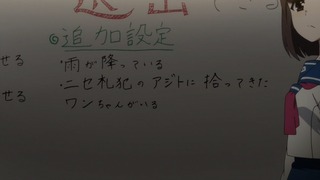 できる
◎追加設定
せる
・雨が降っている
・ニセ札犯のアジトに拾ってきた
せる
ワンちゃんがいる